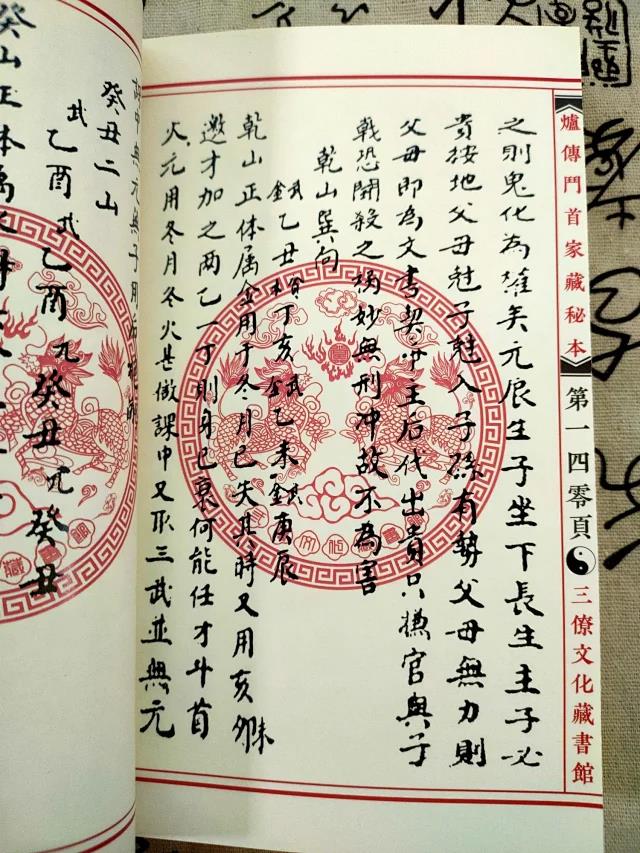 爐傳門首家藏秘本
第一四零頁
三僚文化藏書館
之則鬼化為雄矣元辰生子坐下長生主子必
貴按地父母尅子魁入子孫有勢父母無力則
父母即為文書契券主后代出貴只嫌官與子
戰恐開殺之禍妙無刑冲故不為害
乾山巽向
乙丑 丁亥 乙未 庚辰
乾山正体属金用于冬月已失其時又用亥卯未
邀才加之两乙一丁則身已衰何能任才斗首
火元用冬月冬火甚傲課中又取三武並無元
癸丑二山
武乙酉武乙酉元癸丑元癸丑